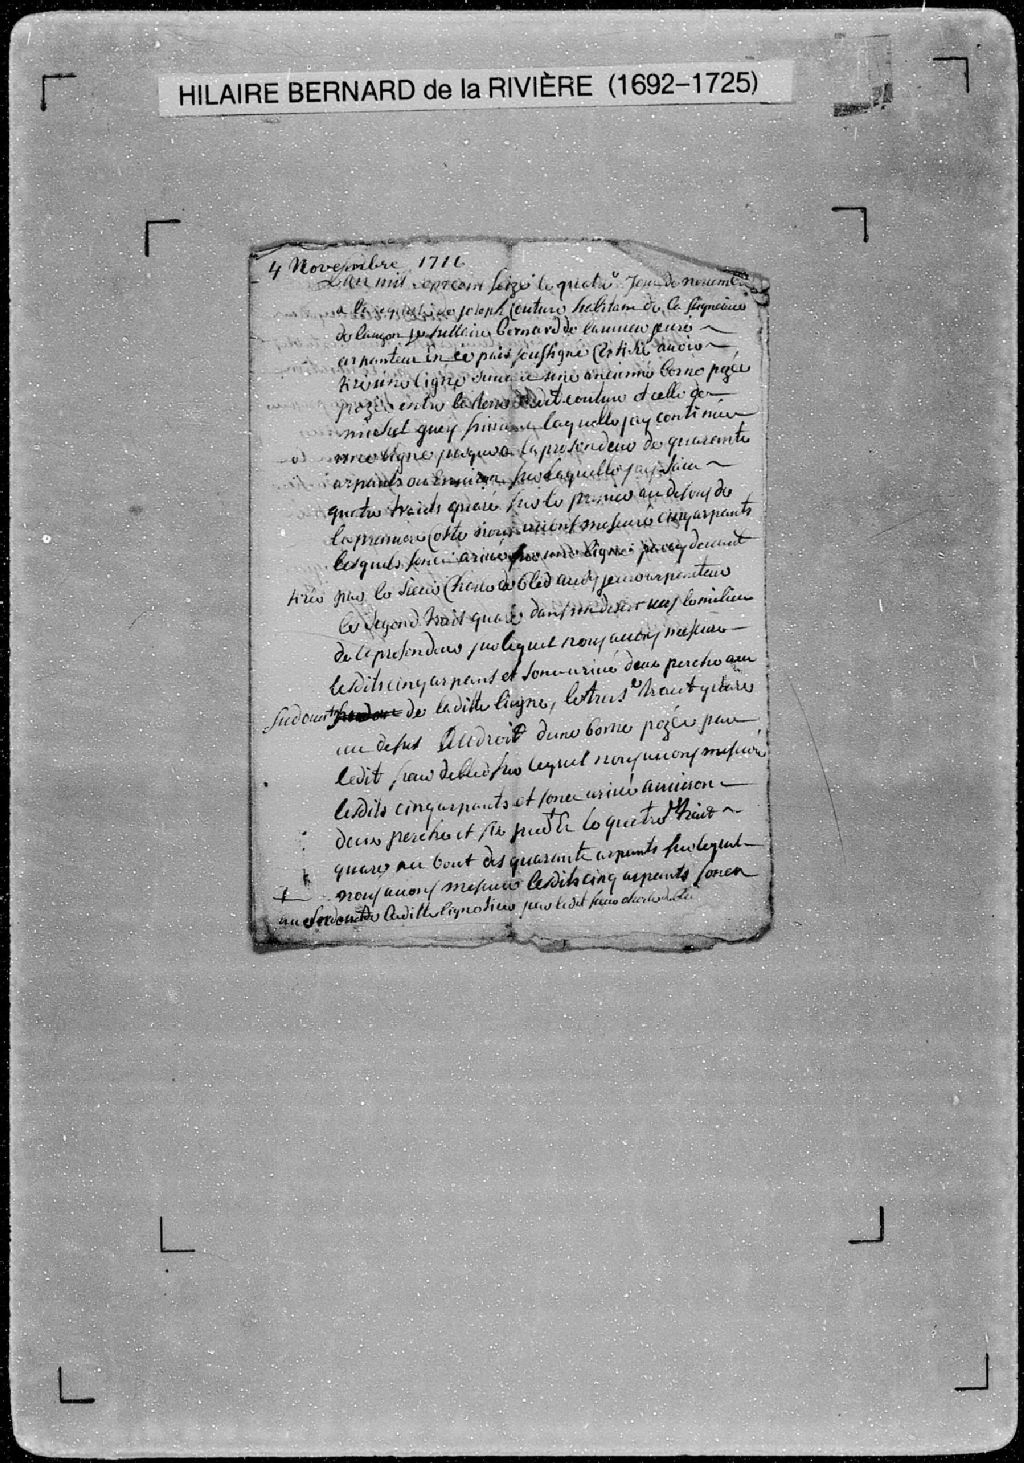 HILAIRE BERNARD de la RIVIÈRE (1692–1725)
4 Novembre 1716
L'an mil sept cent seize le quatre Jour de novemb
a la requisition joseph Couture habitant de la seigneurie
de lauzon je hillaire bernard de lariviere juré
arpanteur en ce païs soussigne Certifie avoir
tiré une ligne une ancienne borne pozée
pozée entre la terre dudit couture et celle de
michel guey suivant laquelle jay continué
une ligne jusqua la profondeur de quarante
arpants ou environ sur laquelle jay faict
quatre traits quaré sur le premier au desous de
la premiere Coste nous avons mesuré cinq arpants
lesquels sont arivé sur une ligne
tirée par le sieur arpenteur
le segond trait quaré dans un desert vers le milieu
de la profondeur sur lequel nous avons mesuré
lesdits cinq arpans et somes arivé deux perches au
sudouest de laditte ligne, le trois.e trait quaré
au desus audroit dune borne pozée par
ledit sieur sur lequel nous avons mesuré
lesdits cinq arpants et somes arivé
deux perches et six pied le quatre.e trait
quaré au bout des quarante arpants sur lequel
nous avons mesuré lesdits cinq arpants somes
au sudouest de laditte ligne tirée par ledit sieur